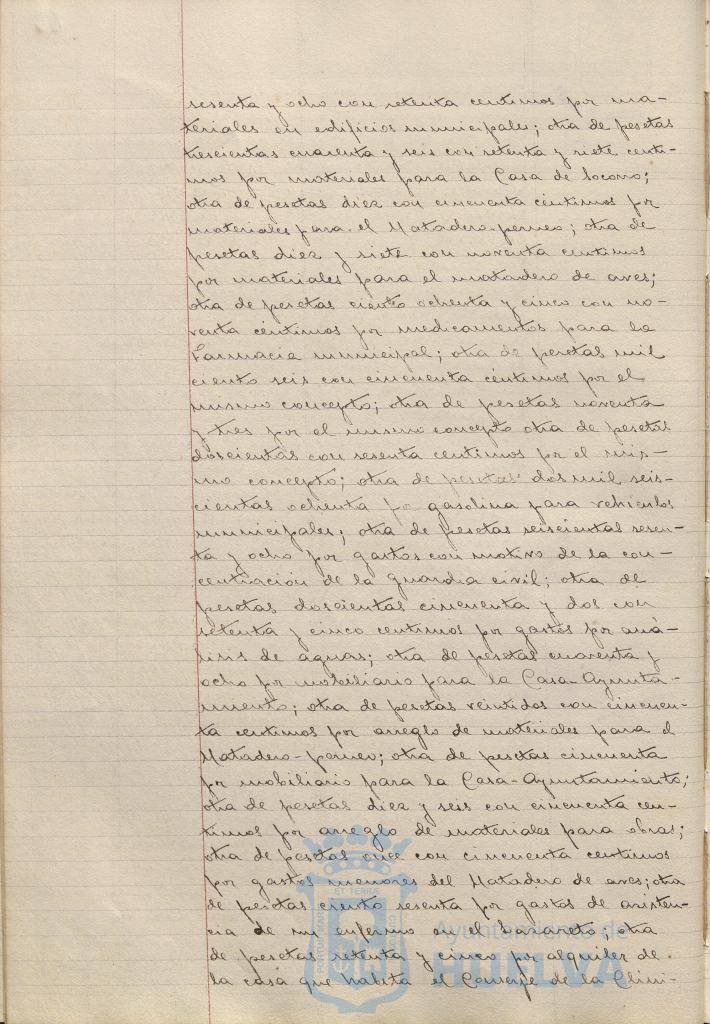 sesenta y ocho con setenta centimos por ma-
teriales en edificios municipales; otra de pesetas
trescientas cuarenta y seis con setenta y siete centi-
mos por materiales para la Casa de Socorro;
otra de pesetas diez con cincuenta céntimos por
materiales para el Matadero-porneo; otra de
pesetas diez y siete con noventa centimos
por materiales para el matadero de aves;
otra de pesetas ciento ochenta y cinco con no-
venta céntimos por medicamentos para la
Farmacia municipal; otra de pesetas mil
ciento seis con cincuenta céntimos por el
mismo concepto; otra de pesetas noventa
y tres por el mismo concepto otra de pesetas
doscientas con sesenta centimos por el mis-
mo concepto; otra de pesetas dos mil seis-
cientas ochenta por gasolina para vehiculos
municipales; otra de pesetas seiscientas sesen-
ta y ocho por gastos con motivo de la con-
centración de la guardia civil; otra de
pesetas doscientas cincuenta y dos con
setenta y cinco centimos por gastos por aná-
lisis de aguas; otra de pesetas cuarenta y
ocho por mobiliario para la Casa-Ayunta-
miento; otra de pesetas veintidos con cincuen-
ta centimos por arreglo de materiales para el
Matadero-porneo; otra de pesetas cincuenta
por mobiliario para la Casa-Ayuntamiento;
otra de pesetas diez y seis con cincuenta cen-
timos por arreglo de materiales para obras;
otra de pesetas once con cincuenta centimos
por gastos menores del Matadero de aves; otra
de pesetas ciento sesenta por gastos de asisten-
cia de un enfermo en el Lazareto; otra
de pesetas setenta y cinco por alquiler de
la casa que habita el Conserje de la Clini-
Ayuntamiento de
HUELVA